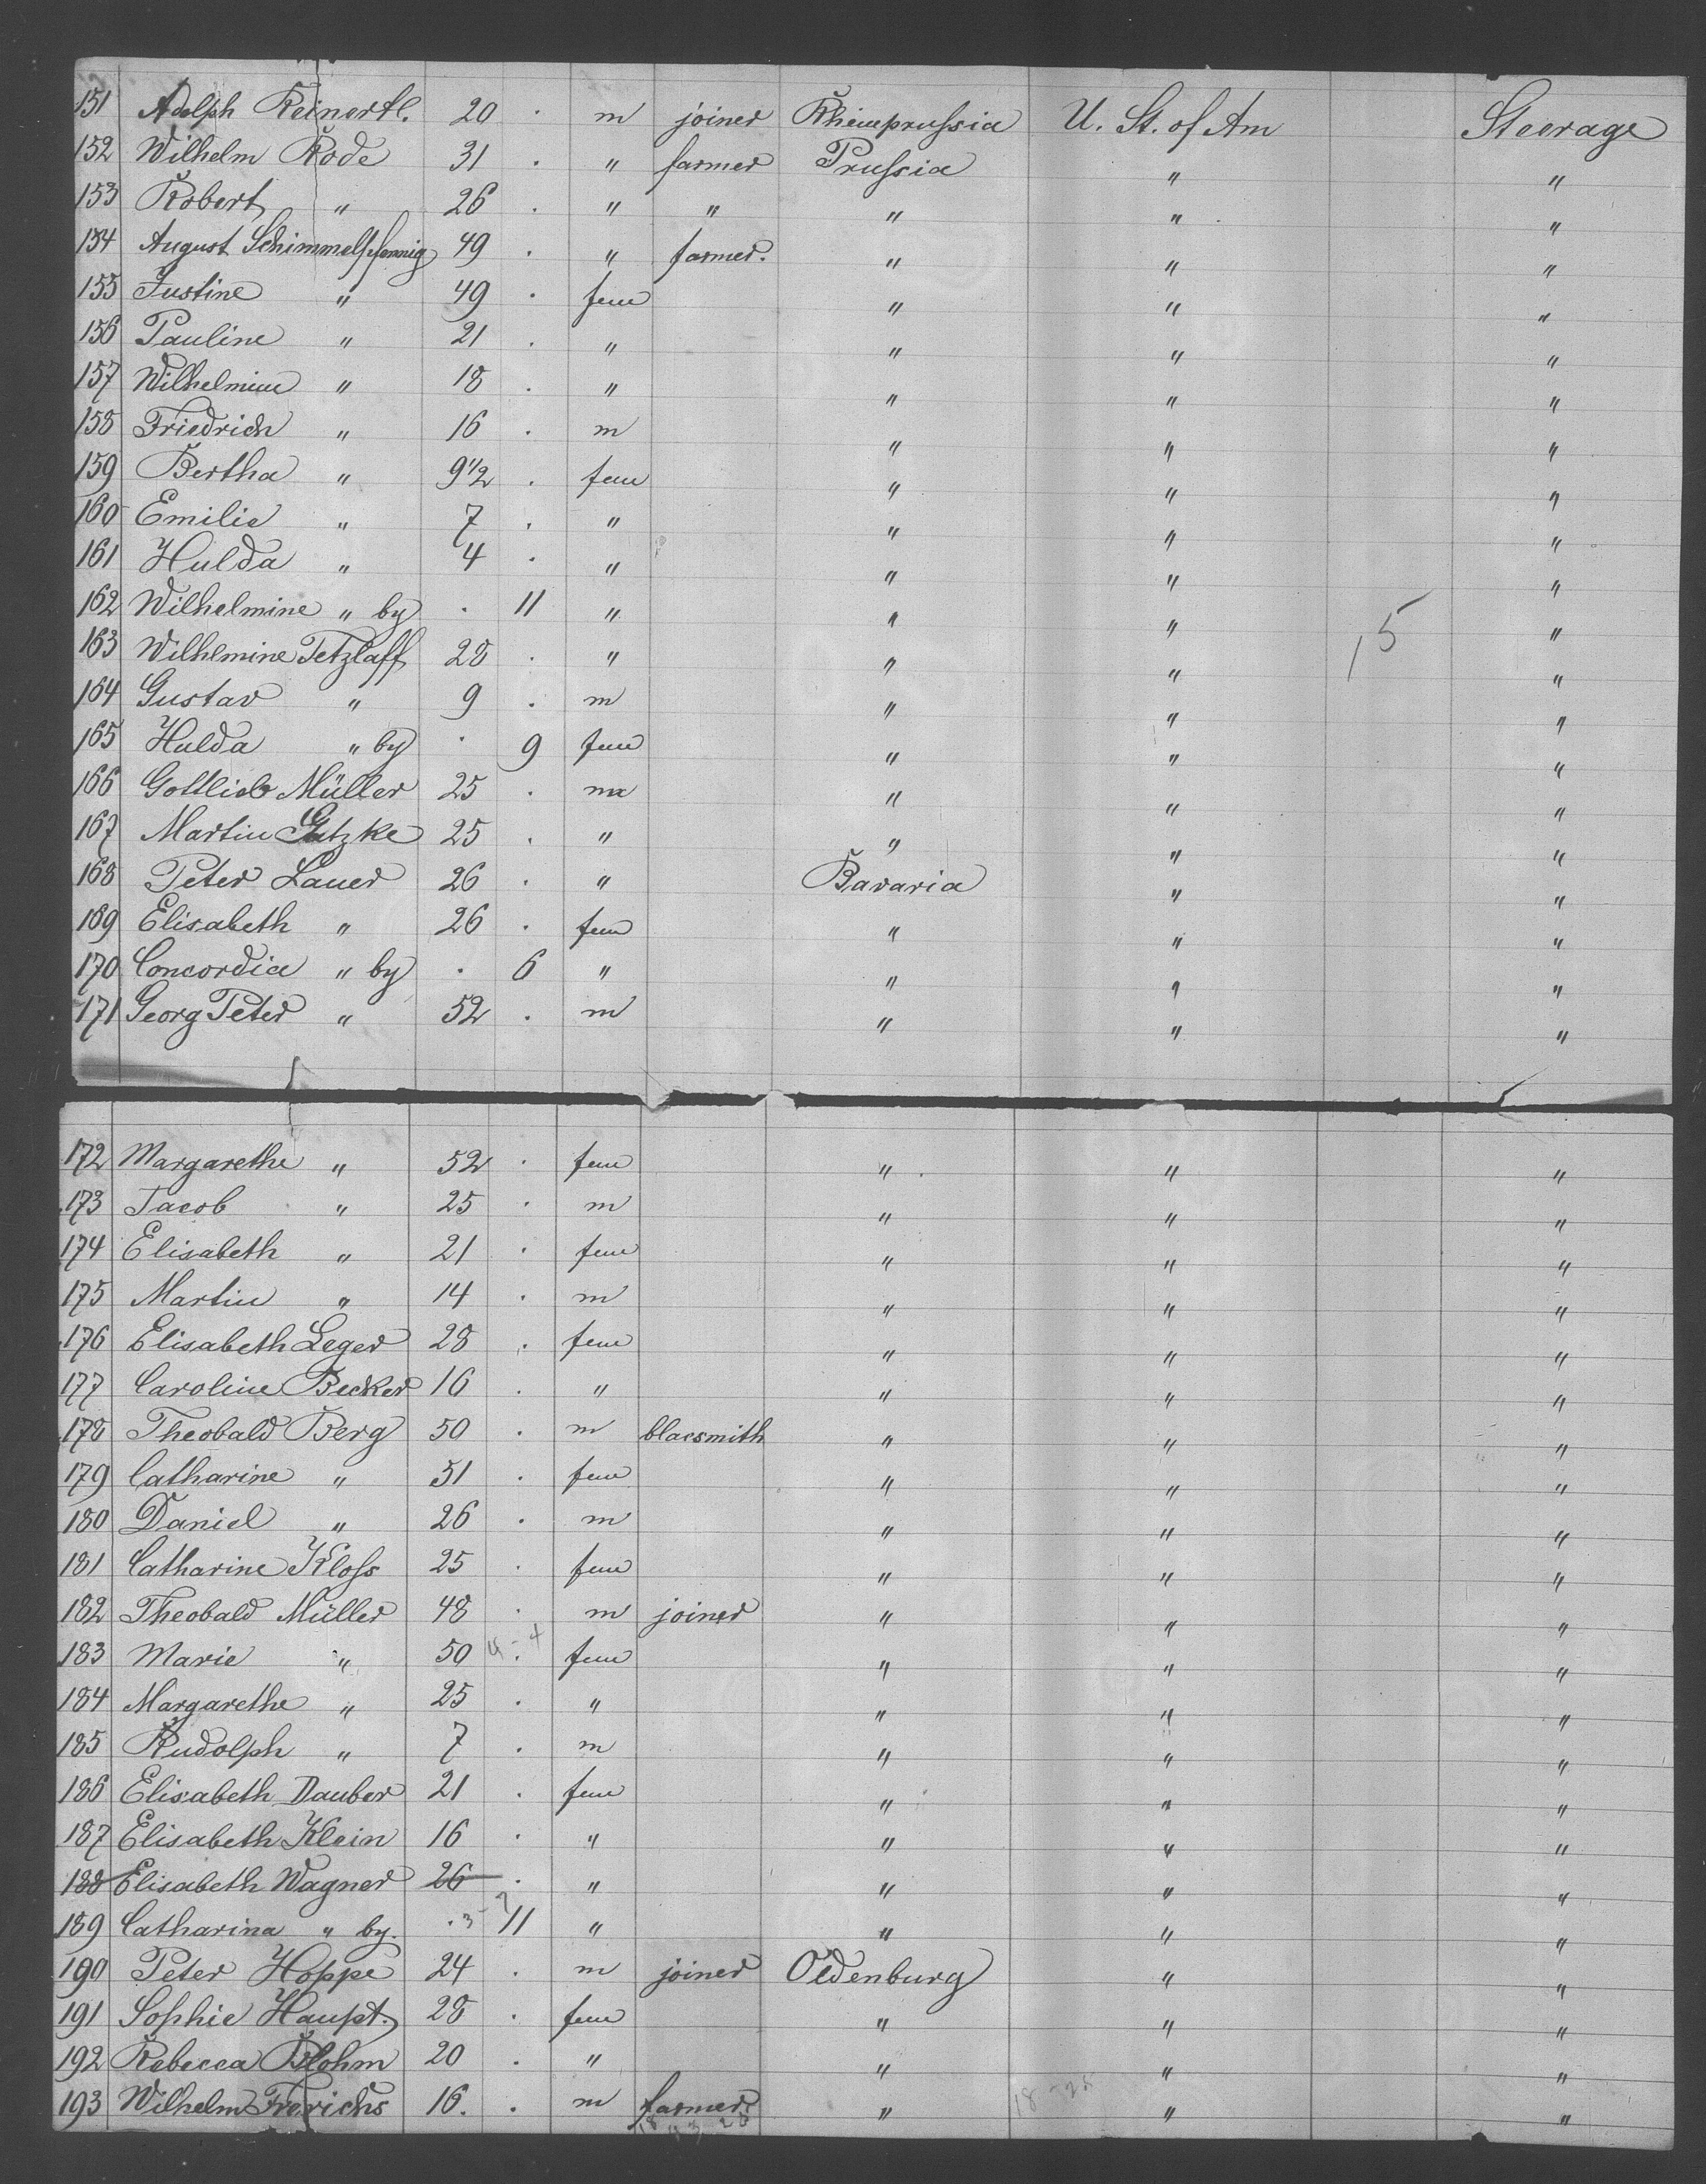 151 Adolph Reinertl. 20 . m joiner Rheinprussia U. St. of Am Steerage
152 Wilhelm Rode 31 . " farmer Prussia " "
153 Robert " 26 . " " " " "
154 August Schimmelpfennig 49 . " farmer. " " "
155 Justine " 49 . fem " " "
156 Pauline " 21 . " " " "
157 Wilhelmine " 18 . " " " "
158 Friedrich " 16 . m " " "
159 Bertha " 9 1/2 . fem " " "
160 Emilie " 7 . " " " "
161 Hulda " 4 . " " " "
162 Wilhelmine " by . 11 " " " "
163 Wilhlmine Tetzlaff 28 . " " " 15 "
164 Gustav " 9 . m " " "
165 Hulda " by . 9 fem " " "
166 Gottlieb Müller 25 . ma " " "
167 Martin Gatzke 25 . " " " "
168 Peter Lauer 26 . " Bavaria " "
169 Elisabeth " 26 . fem " " "
170 Concordia " by . 6 " " " "
171 Georg Peter " 52 . m " " "
172 Margarethe " 52 . fem " " "
173 Jacob " 25 . m " " "
174 Elisabeth " 21 . fem " " "
175 Martin " 14 . m " " "
176 Elisabeth Leger 28 . fem " " "
177 Caroline Becker 16 . " " " "
178 Theobald Berg 50 . m blacsmith " " "
179 Catharine " 51 . fem " " "
180 Daniel " 26 . m " " "
181 Catharine Kloss 25 . fem " " "
182 Theobald Müller 48 . m joiner " " "
183 Marie " 50 . fem " " "
184 Margarethe " 25 . " " " "
185 Rudolph " 7 . m " " "
186 Elisabeth Dauber 21 . fem " " "
187 Elisabeth Klein 16 . " " " "
188 Elisabeth Wagner 26 . " " " "
189 Catharina " by. . 11 " " " "
190 Peter Hoppe 24 . m joiner Oldenburg " "
191 Sophie Haupt. 28 . fem " " "
192 Rebecca Blohm 20 . " " " "
193 Wilhelm Frerichs 16. . m farmer " " "